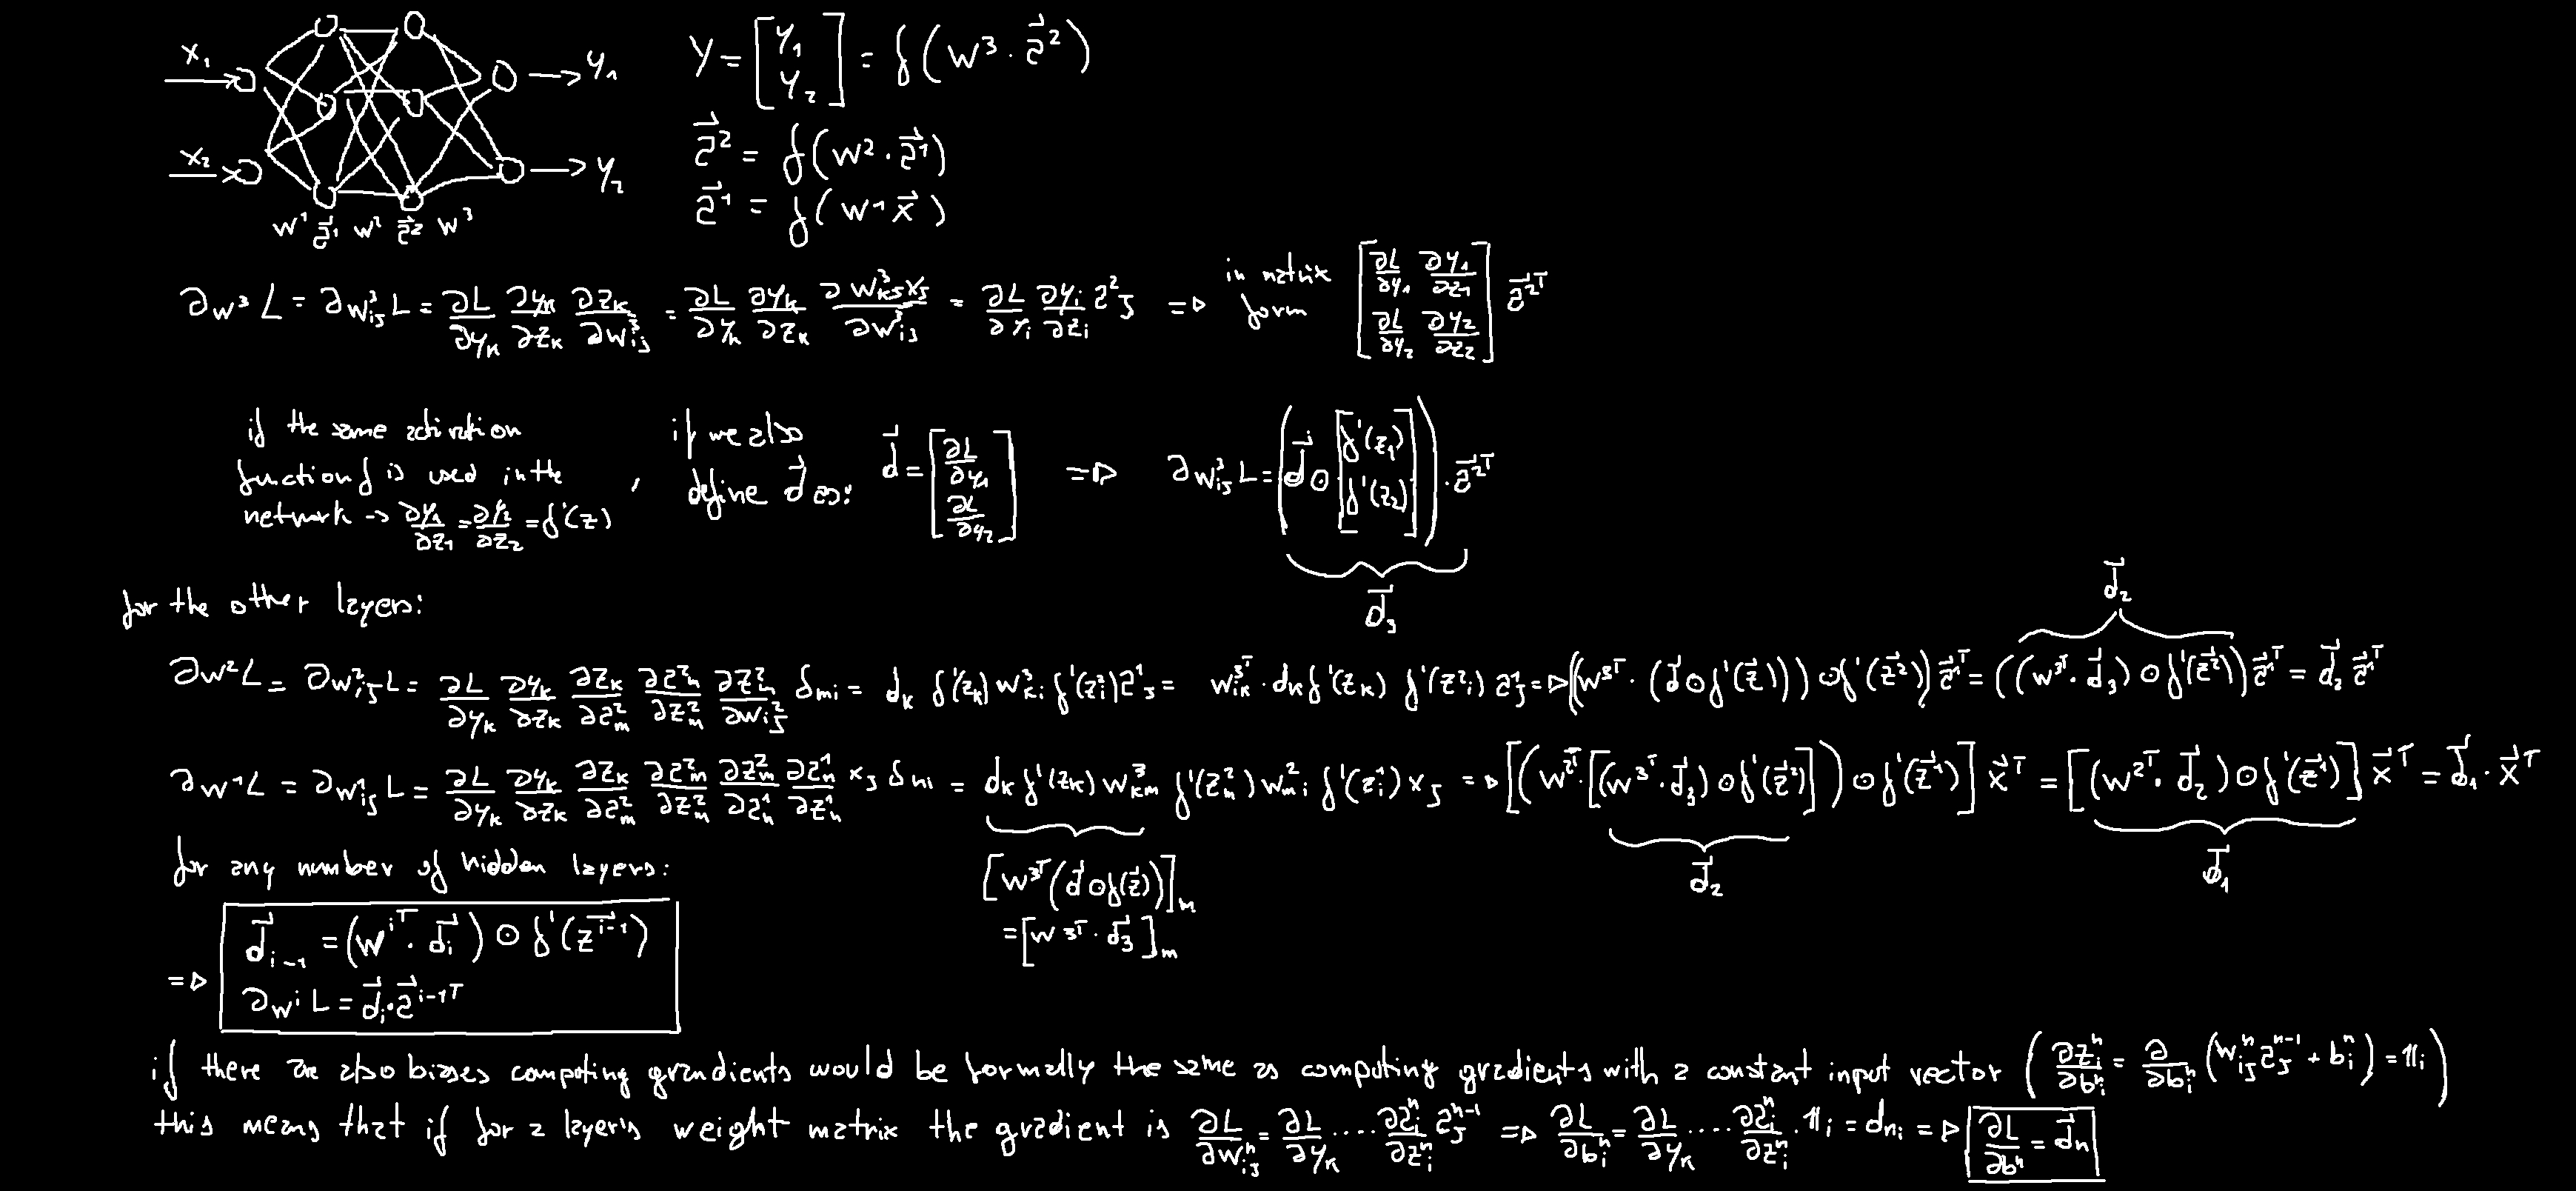 x₁ → y₁
x₂ → y₂
w¹ a⃗¹ w² a⃗² w³
Y = [y₁ y₂] = f(w³ · a⃗²)
a⃗² = f(w² · a⃗¹)
a⃗¹ = f(w¹ x⃗)
∂w³ L = ∂w³ᵢⱼ L = ∂L/∂yₖ ∂yₖ/∂zₖ ∂zₖ/∂w³ᵢⱼ = ∂L/∂yₖ ∂yₖ/∂zₖ ∂w³ₖⱼxⱼ/∂w³ᵢⱼ = ∂L/∂yᵢ ∂yᵢ/∂zᵢ a²ⱼ => in matrix form [∂L/∂y₁ ∂y₁/∂z₁ ∂L/∂y₂ ∂y₂/∂z₂] a⃗²ᵀ
if the same activation
function f is used in the
network -> ∂y₁/∂z₁ = ∂y₂/∂z₂ = f'(z)
, if we also
define d⃗ as: d⃗ = [∂L/∂y₁ ∂L/∂y₂] => ∂w³ᵢⱼ L = (d⃗ ⊙ [f'(z₁) f'(z₂)]) · a⃗²ᵀ
d⃗₃
for the other layers:
d⃗₂
∂w² L = ∂w²ᵢⱼ L = ∂L/∂yₖ ∂yₖ/∂zₖ ∂zₖ/∂a²ₘ ∂a²ₘ/∂z²ₘ ∂z²ₘ/∂w²ᵢⱼ δmi = dₖ f'(zₖ) w³ₖᵢ f'(z²ᵢ) a¹ⱼ = w³ᵀᵢₖ · dₖ f'(zₖ) f'(z²ᵢ) a¹ⱼ => ((w³ᵀ · (d⃗ ⊙ f'(z⃗))) ⊙ f'(z⃗²)) a⃗¹ᵀ = ((w³ᵀ · d⃗₃) ⊙ f'(z⃗²)) a⃗¹ᵀ = d⃗₂ a⃗¹ᵀ
∂w¹ L = ∂w¹ᵢⱼ L = ∂L/∂yₖ ∂yₖ/∂zₖ ∂zₖ/∂a²ₘ ∂a²ₘ/∂z²ₘ ∂z²ₘ/∂a¹ₙ ∂a¹ₙ/∂z¹ₙ xⱼ δni = dₖ f'(zₖ) w³ₖₘ f'(z²ₘ) w²ₘᵢ f'(z¹ᵢ) xⱼ => [(w²ᵀ · [(w³ᵀ · d⃗₃) ⊙ f'(z⃗²)]) ⊙ f'(z⃗¹)] x⃗ᵀ = [(w²ᵀ · d⃗₂) ⊙ f'(z⃗¹)] x⃗ᵀ = d⃗₁ · x⃗ᵀ
d⃗₂ d⃗₁
[w³ᵀ(d⃗ ⊙ f(z⃗))]ₘ
= [w³ᵀ · d⃗₃]ₘ
for any number of hidden layers:
=> d⃗ᵢ₋₁ = (wⁱᵀ · d⃗ᵢ) ⊙ f'(z⃗ⁱ⁻¹)
∂wⁱ L = d⃗ᵢ · a⃗ⁱ⁻¹ᵀ
if there are also biases computing grandients would be formally the same as computing gradients with a constant input vector (∂zⁿᵢ/∂bⁿᵢ = ∂/∂bⁿᵢ (wⁿᵢⱼ aⁿ⁻¹ⱼ + bⁿᵢ) = 𝟙ᵢ)
this means that if for a layer's weight matrix the gradient is ∂L/∂wⁿᵢⱼ = ∂L/∂yₖ .... ∂aⁿᵢ/∂zⁿᵢ aⁿ⁻¹ⱼ => ∂L/∂bⁿᵢ = ∂L/∂yₖ .... ∂aⁿᵢ/∂zⁿᵢ · 𝟙ᵢ = dₙᵢ => ∂L/∂bⁿ = d⃗ₙ